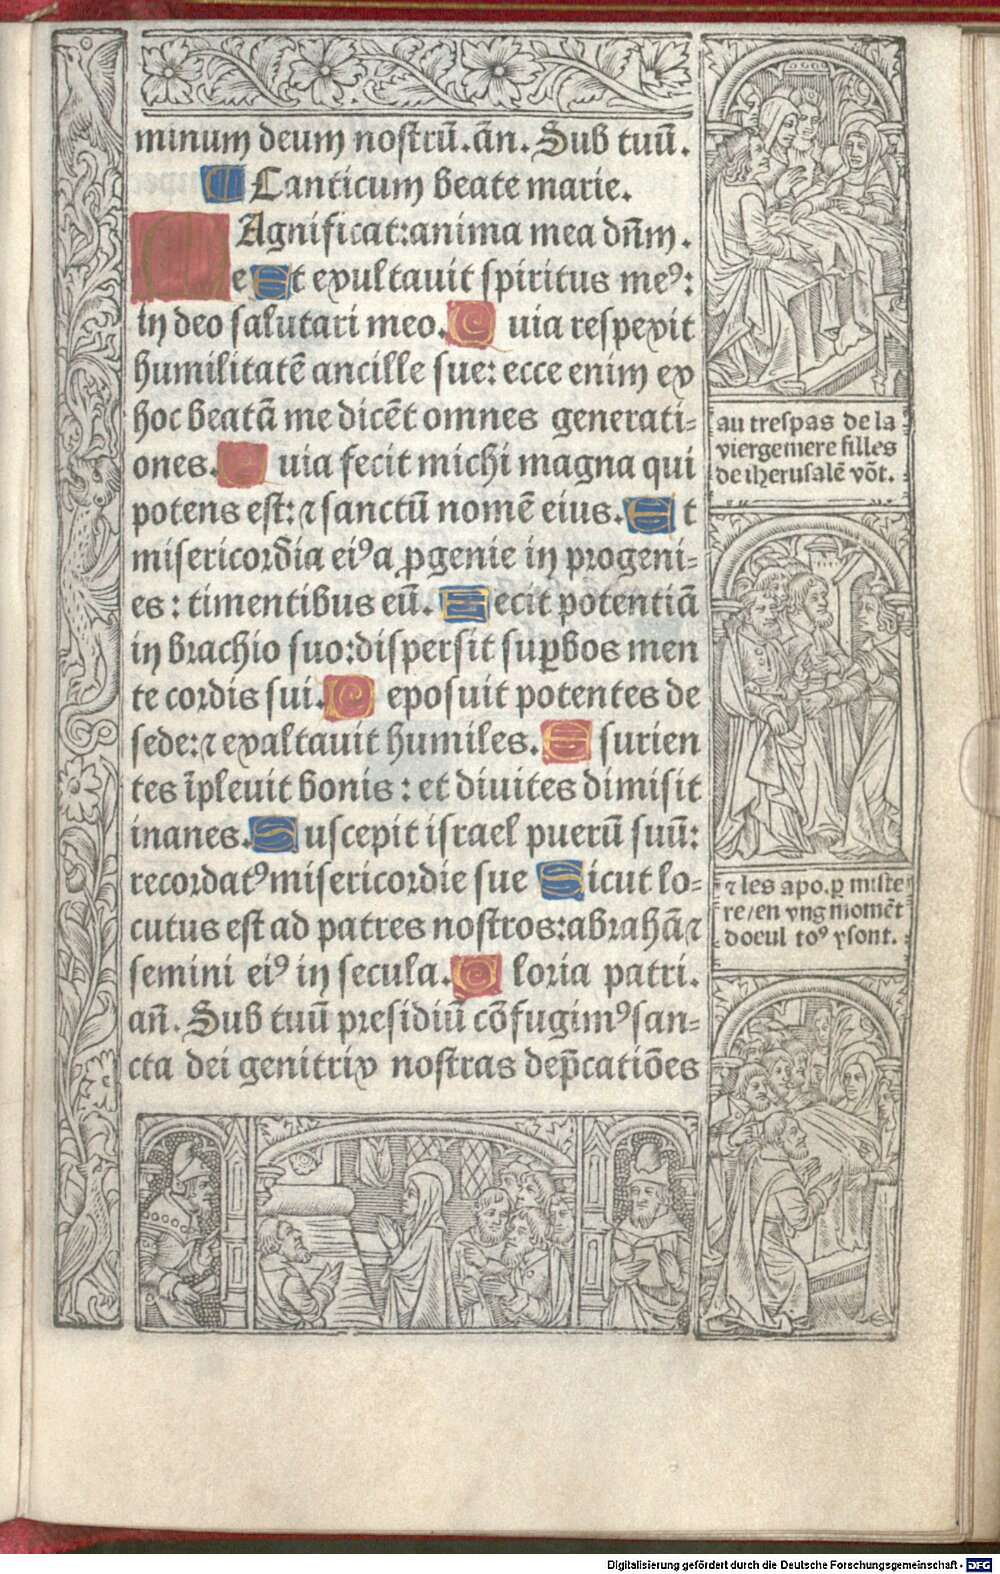 minum deum nostrū. ān. Sub tuū.
¶ Canticum beate marie.
MAgnificat: anima mea dn̄m.
Et exultavit spiritus meꝰ:
in deo salutari meo. Quia respexit
humilitatē ancille sue: ecce enim ex
hoc beatā me dicēt omnes generati-
ones. Quia fecit michi magna qui
potens est: ⁊ sanctū nomē eius. Et
misericordia eiꝰ a ꝓgenie in progeni-
es: timentibus eū. Fecit potentiā
in brachio suo: dispersit suꝑbos men
te cordis sui. Deposuit potentes de
sede: ⁊ exaltauit humiles. Esurien
tes īpleuit bonis: et diuites dimisit
inanes. Suscepit israel puerū suū:
recordatꝰ misericordie sue Sicut lo-
cutus est ad patres nostros: abrahā ⁊
semini eiꝰ in secula. Gloria patri.
an̄. Sub tuū presidiū cōfugimꝰ san-
cta dei genitrix nostras dep̄catiōes
au trespas de la
vierge mere filles
de iherusalē vōt.
⁊ les apo. ꝑ miste
re / en vng momēt
doeul toꝰ y sont.
Digitalisierung gefördert durch die Deutsche Forschungsgemeinschaft - DFG